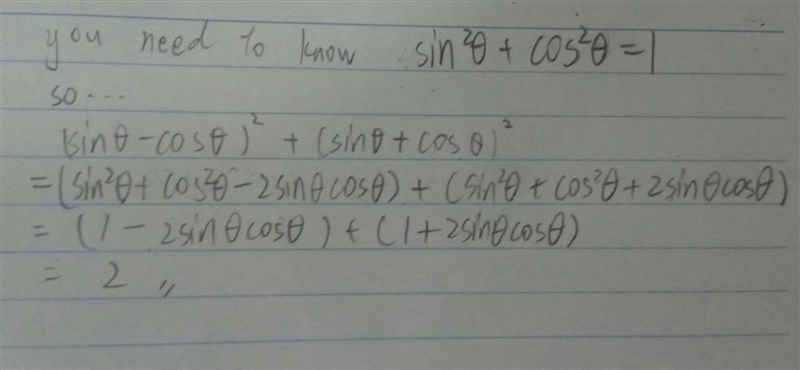 you need to know sin²θ + cos²θ = 1
so...
(sinθ - cosθ)² + (sinθ + cosθ)²
= (sin²θ + cos²θ - 2sinθcosθ) + (sin²θ + cos²θ + 2sinθcosθ)
= (1 - 2sinθcosθ) + (1 + 2sinθcosθ)
= 2 〃